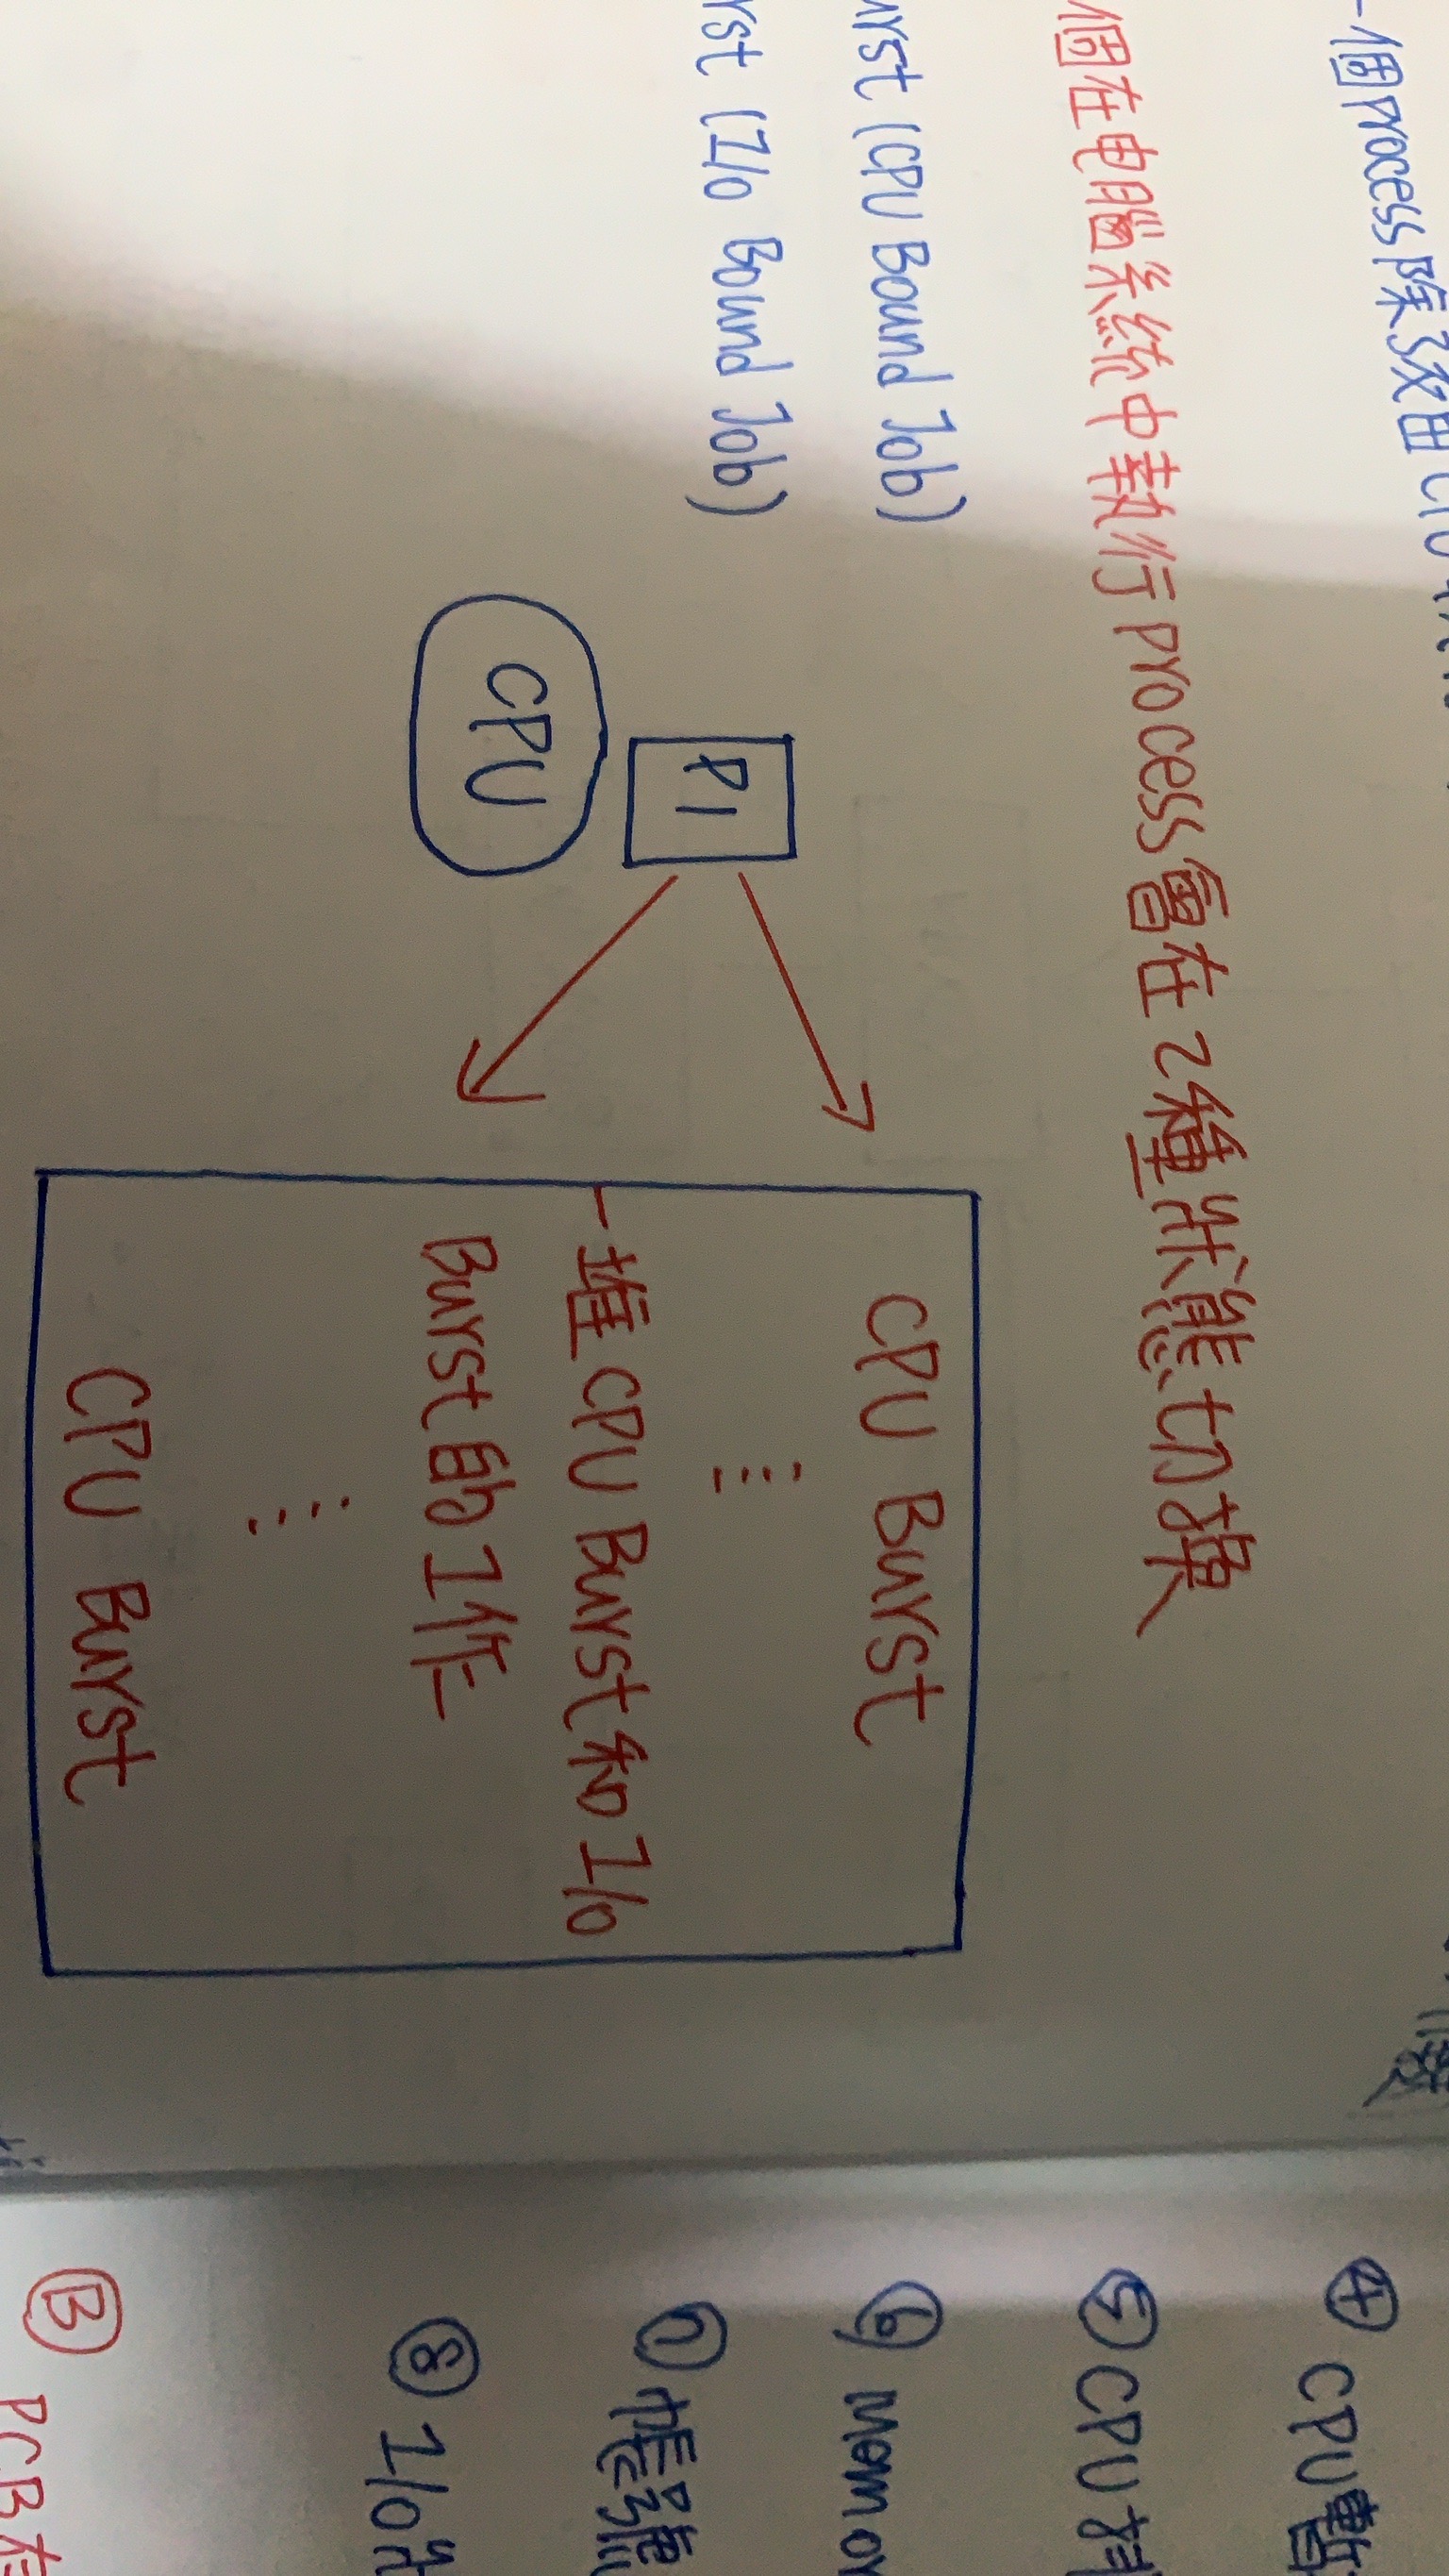 一個process除了交由CPU
個在电腦系統中執行process會在2種狀態切換
urst (CPU Bound Job)
rst (I/O Bound Job)
P1
CPU
CPU Burst
一堆 CPU Burst 和 I/O
Burst 的工作
CPU Burst
④ CPU暫
⑤ CPU 排
⑥ Memor
⑦ 帳號
⑧ I/O
Ⓑ
PCB 在